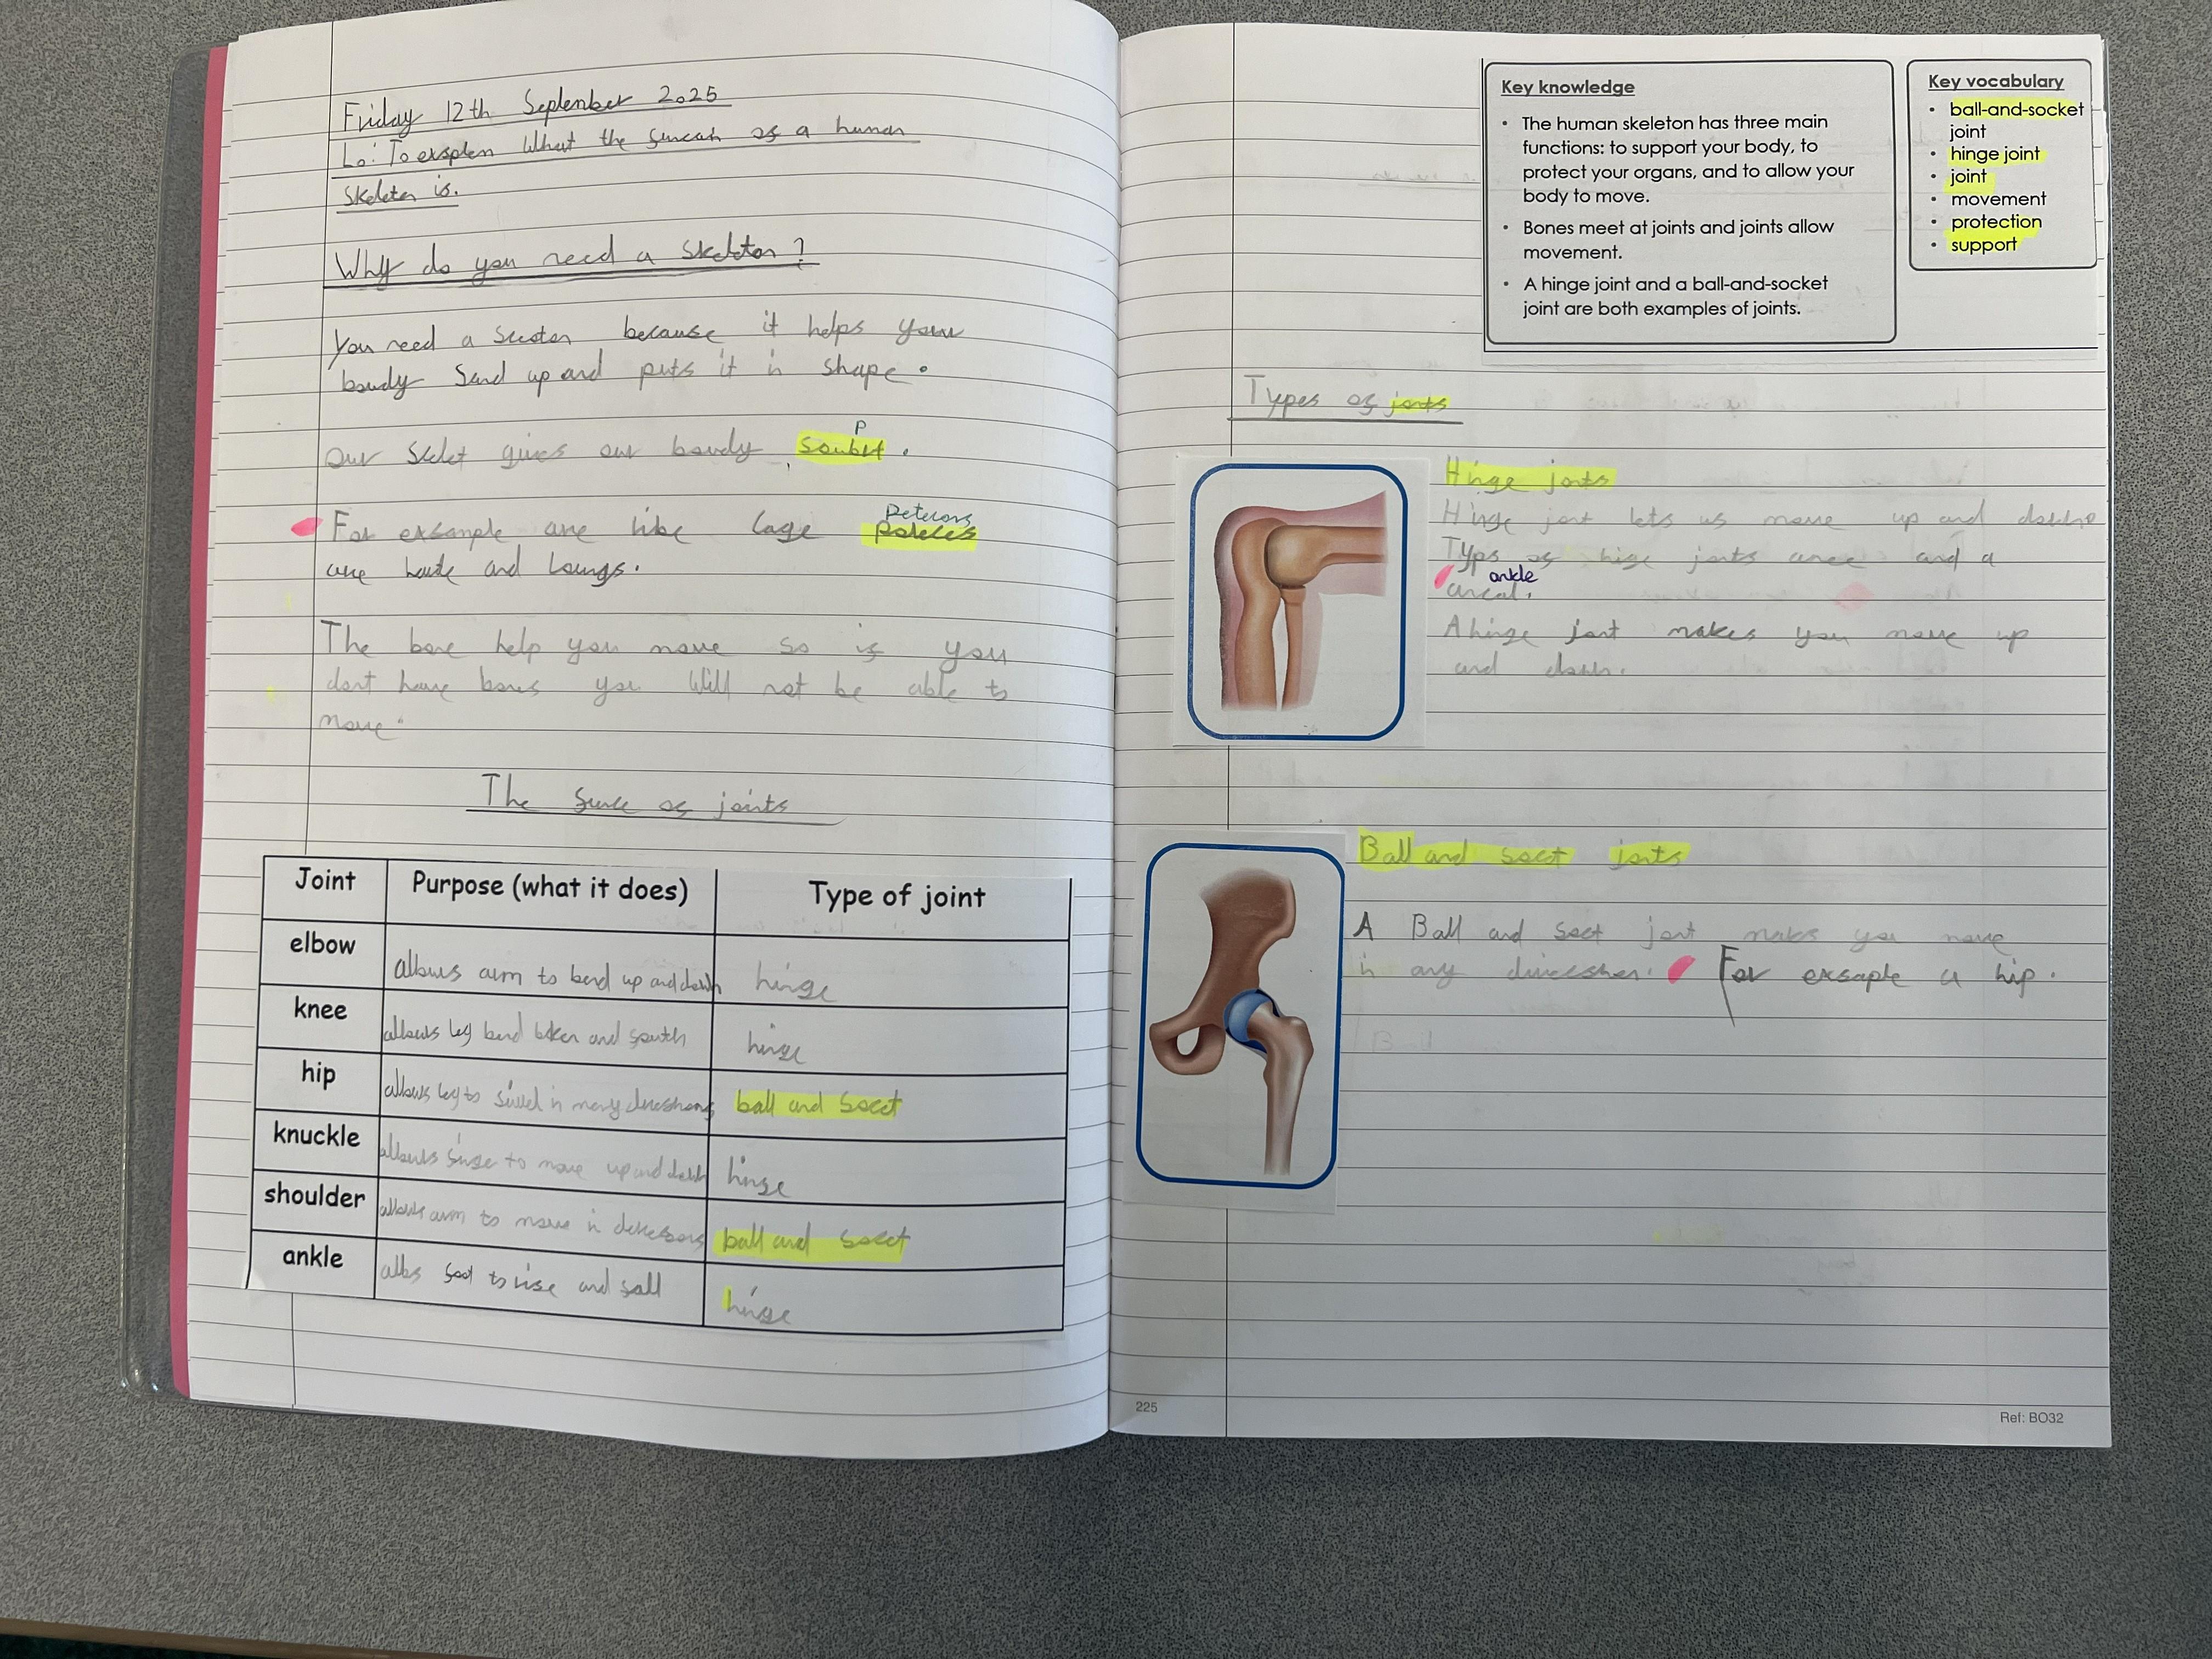 Friday 12th September 2025
Lo: To exsplen What the of a human
Skeleton is.
Why do you need a Skeleton?
You need a because it helps your
boudy Sand up and puts it in shape.
our Sklet gives our boudy
P
For exsample are like cage
are and Loungs.
The bone help you move so if you
dont have bones you Will not be able to
move.
The of joints
Joint Purpose (what it does) Type of joint
elbow allows arm to bend up and hinge
knee allows leg bend and hinge
hip allows leg to in ball and Soect
knuckle to move up and hinge
shoulder arm to move in ball and Soect
ankle foot to rise and fall hinge
Key knowledge
• The human skeleton has three main
functions: to support your body, to
protect your organs, and to allow your
body to move.
• Bones meet at joints and joints allow
movement.
• A hinge joint and a ball-and-socket
joint are both examples of joints.
Key vocabulary
• ball-and-socket
joint
• hinge joint
• joint
• movement
• protection
• support
Types of jonts
Hinge jonts
Hinge jont lets us move up and
Typs of hige jonts and a
ankle
A hinge jont makes you move up
and
Ball and soect jonts
A Ball and Soect jont makes you move
in any For exsaple a hip.
225
Ref: BO32